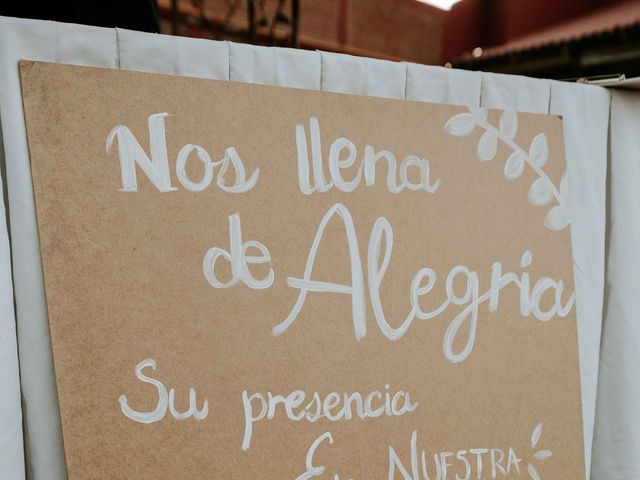 Nos llena
de Alegria
Su presencia
En NUESTRA